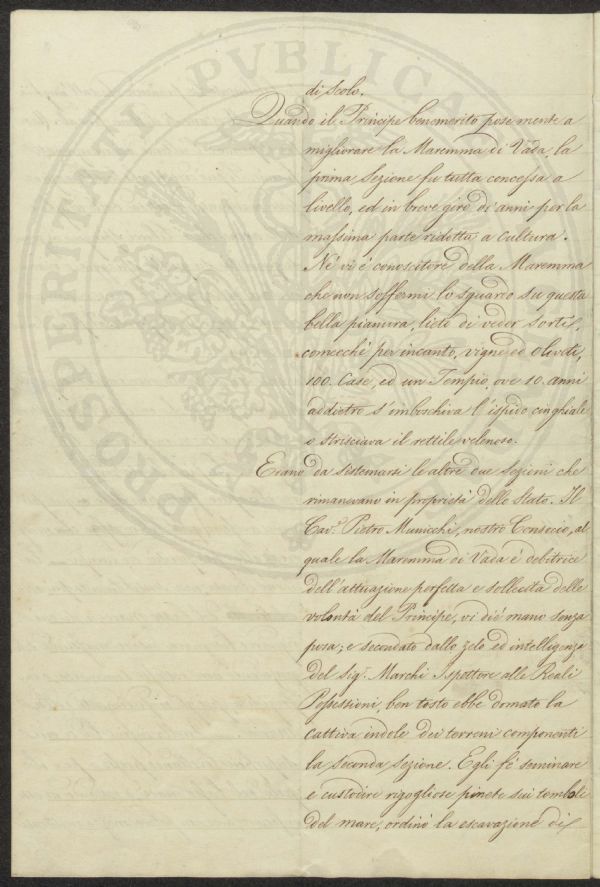 PROSPERITATI PUBLICA
di scolo.
Quando il Principe benemerito pose mente a
migliorare la Maremma di Vada, la
prima Sezione fu tutta concessa a
livello, ed in breve giro di anni per la
massima parte ridotta a cultura.
Nè vi è conoscitore della Maremma
che non soffermi lo sguardo su questa
bella pianura, lieto di veder sorti,
comecchè per incanto, vigne ed Oliveti,
100. Case, ed un Tempio, ove 10. anni
addietro s'imboschiva l'ispido cinghiale
o strisciava il rettile velenoso.
Erano da sistemarsi le altre due sezioni che
rimanevano in proprietà dello Stato. Il
Cav.e Pietro Municchi, nostro Consocio, al
quale la Maremma di Vada è debitrice
dell'attuazione perfetta e sollecita delle
volontà del Principe, vi diè mano senza
posa; e secondato dallo zelo ed intelligenza
del Sig.r Marchi Ispettore alle Reali
Possessioni, ben tosto ebbe domato la
cattiva indole dei terreni componenti
la seconda Sezione. Egli fè seminare
e custodire rigogliose pinete sui tomboli
del mare, ordinò la escavazione di